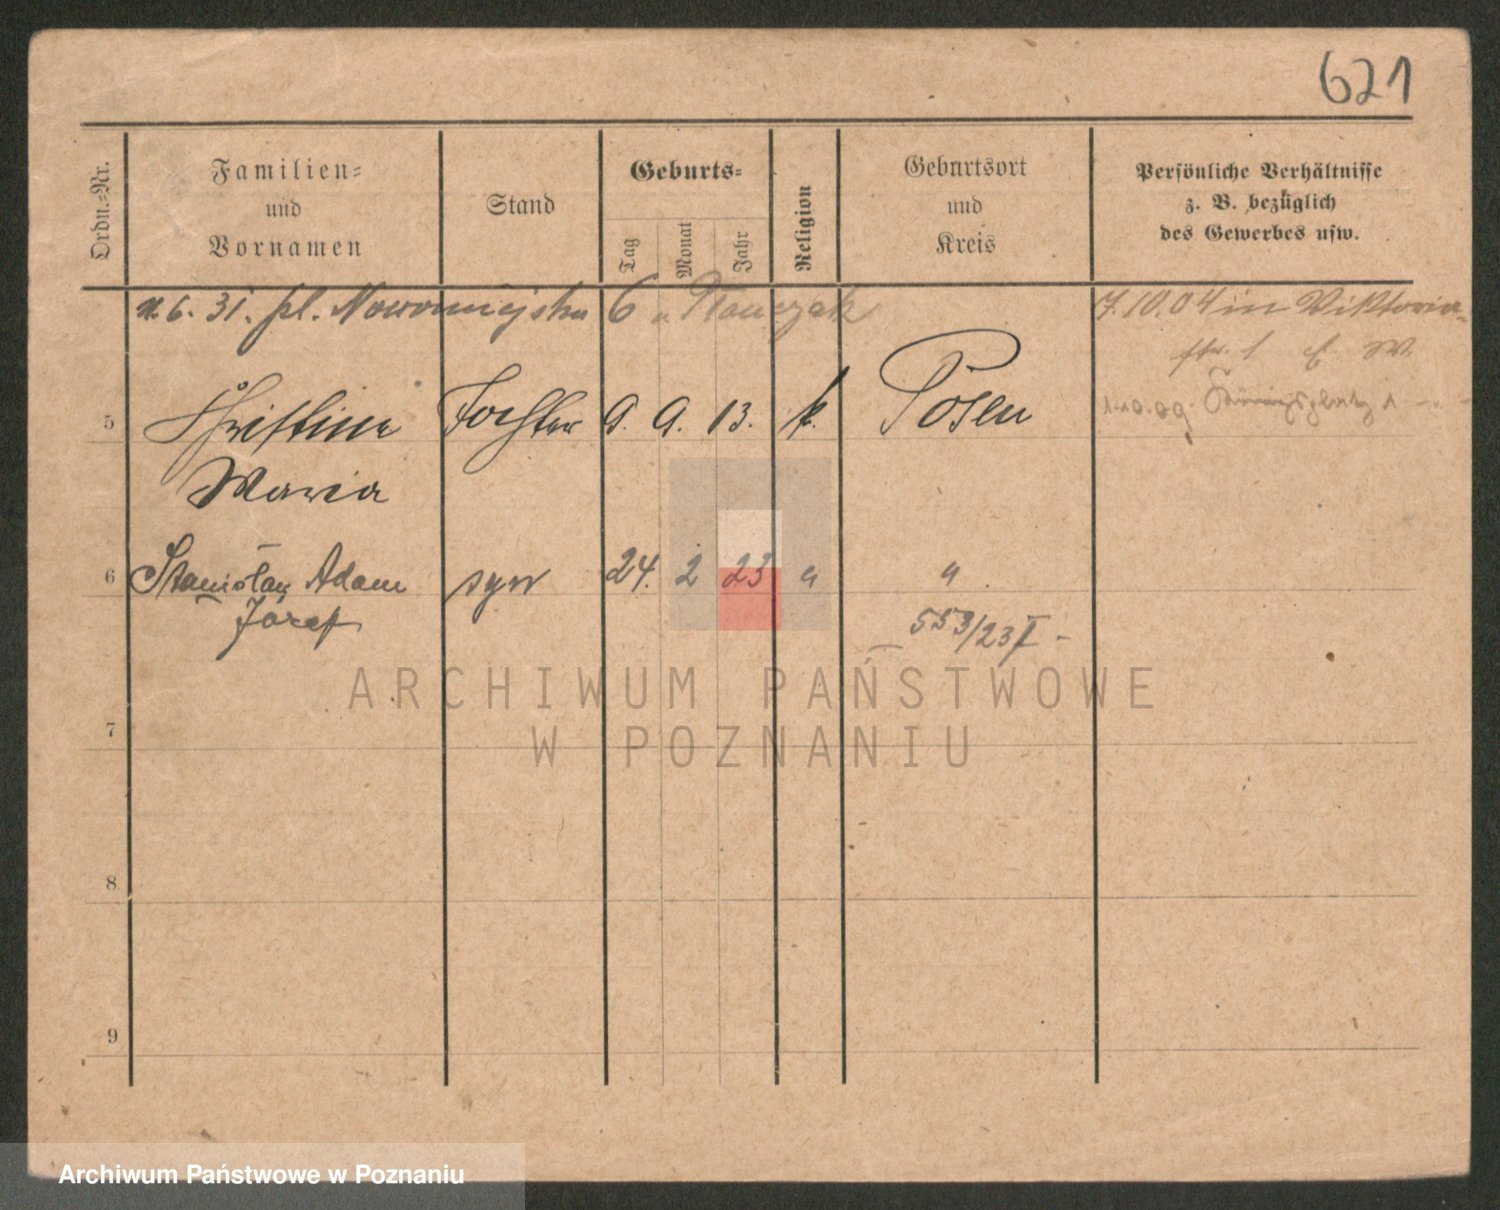 621
Ordn.-Nr.
Familien-
und
Vornamen
Stand
Geburts-
Tag
Monat
Jahr
Religion
Geburtsort
und
Kreis
Persönliche Verhältnisse
z. B. bezüglich
des Gewerbes usw.
6. 31. pl. Nowomiejska 6 Stanczak
7.10.04 in Viktoria-
str. 1
1.10.09. Königsplatz 1
5 Christine Tochter 9. 9. 13. k. Posen
Maria
6 Stanisław Adam syn 24. 2 23 " "
Józef
553/23 I
7
8
9
ARCHIWUM PAŃSTWOWE
W POZNANIU
Archiwum Państwowe w Poznaniu